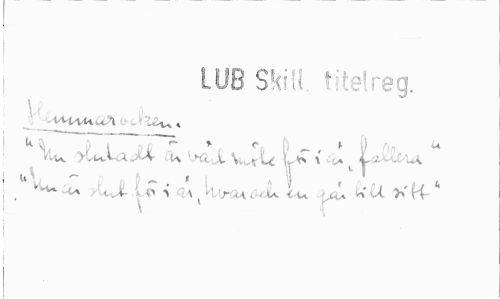 LUB Skill. titelreg.
Hemmarocken.
"Nu slutadt är vårt möte för i år, fallera"
"Nu är slut för i år, hvar och en går till sitt"